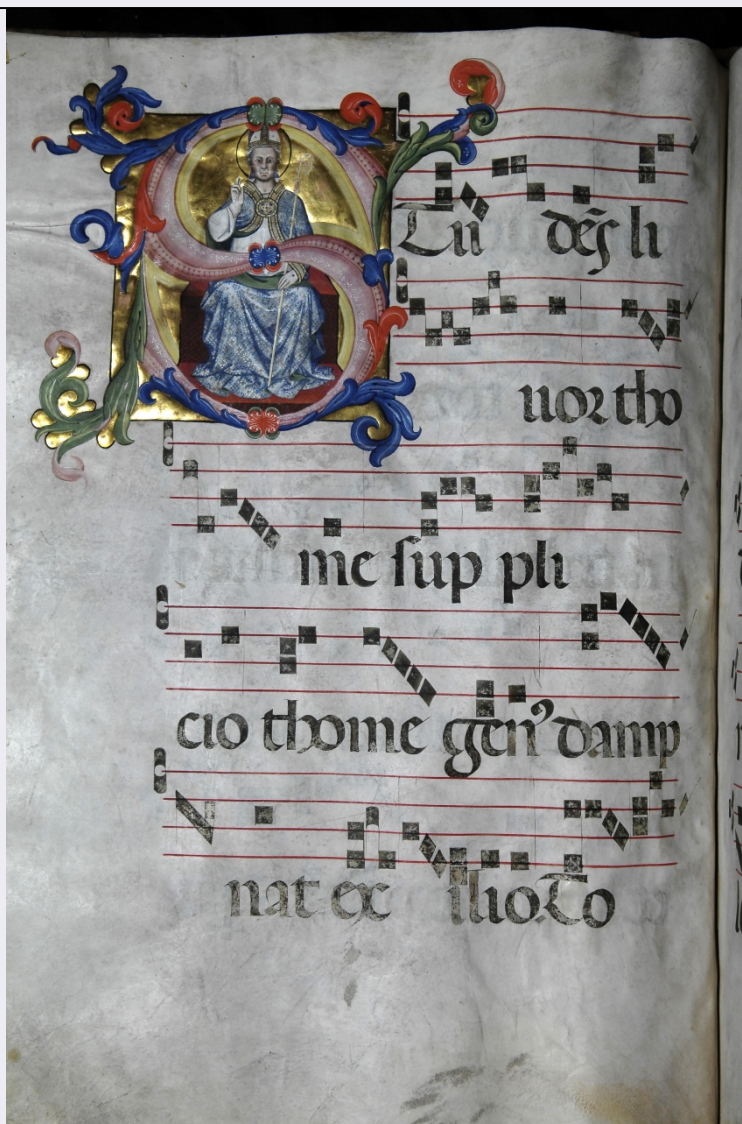 STu dēſ li
uor tho
me ſup pli
cio thome gen⁹ damp
nat ex ilio. To